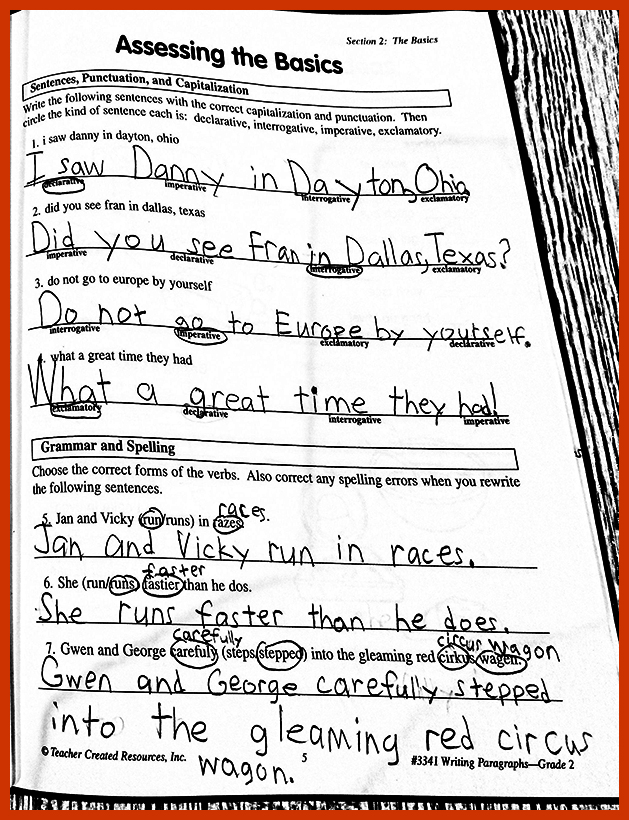 Section 2: The Basics
Assessing the Basics
Sentences, Punctuation, and Capitalization
Write the following sentences with the correct capitalization and punctuation. Then
circle the kind of sentence each is: declarative, interrogative, imperative, exclamatory.
1. i saw danny in dayton, ohio
I saw Danny in Dayton, Ohio
declarative imperative interrogative exclamatory
2. did you see fran in dallas, texas
Did you see Fran in Dallas, Texas?
imperative declarative interrogative exclamatory
3. do not go to europe by yourself
Do not go to Europe by yourself.
interrogative imperative exclamatory declarative
4. what a great time they had
What a great time they had!
exclamatory declarative interrogative imperative
Grammar and Spelling
Choose the correct forms of the verbs. Also correct any spelling errors when you rewrite
the following sentences.
races.
5. Jan and Vicky (run/runs) in razes.
Jan and Vicky run in races.
faster
6. She (run/runs) fastier than he dos.
She runs faster than he does.
carefully circus wagon
7. Gwen and George carefuly (steps/stepped) into the gleaming red cirkus wagen.
Gwen and George carefully stepped
into the gleaming red circus
wagon.
© Teacher Created Resources, Inc. 5 #3341 Writing Paragraphs—Grade 2